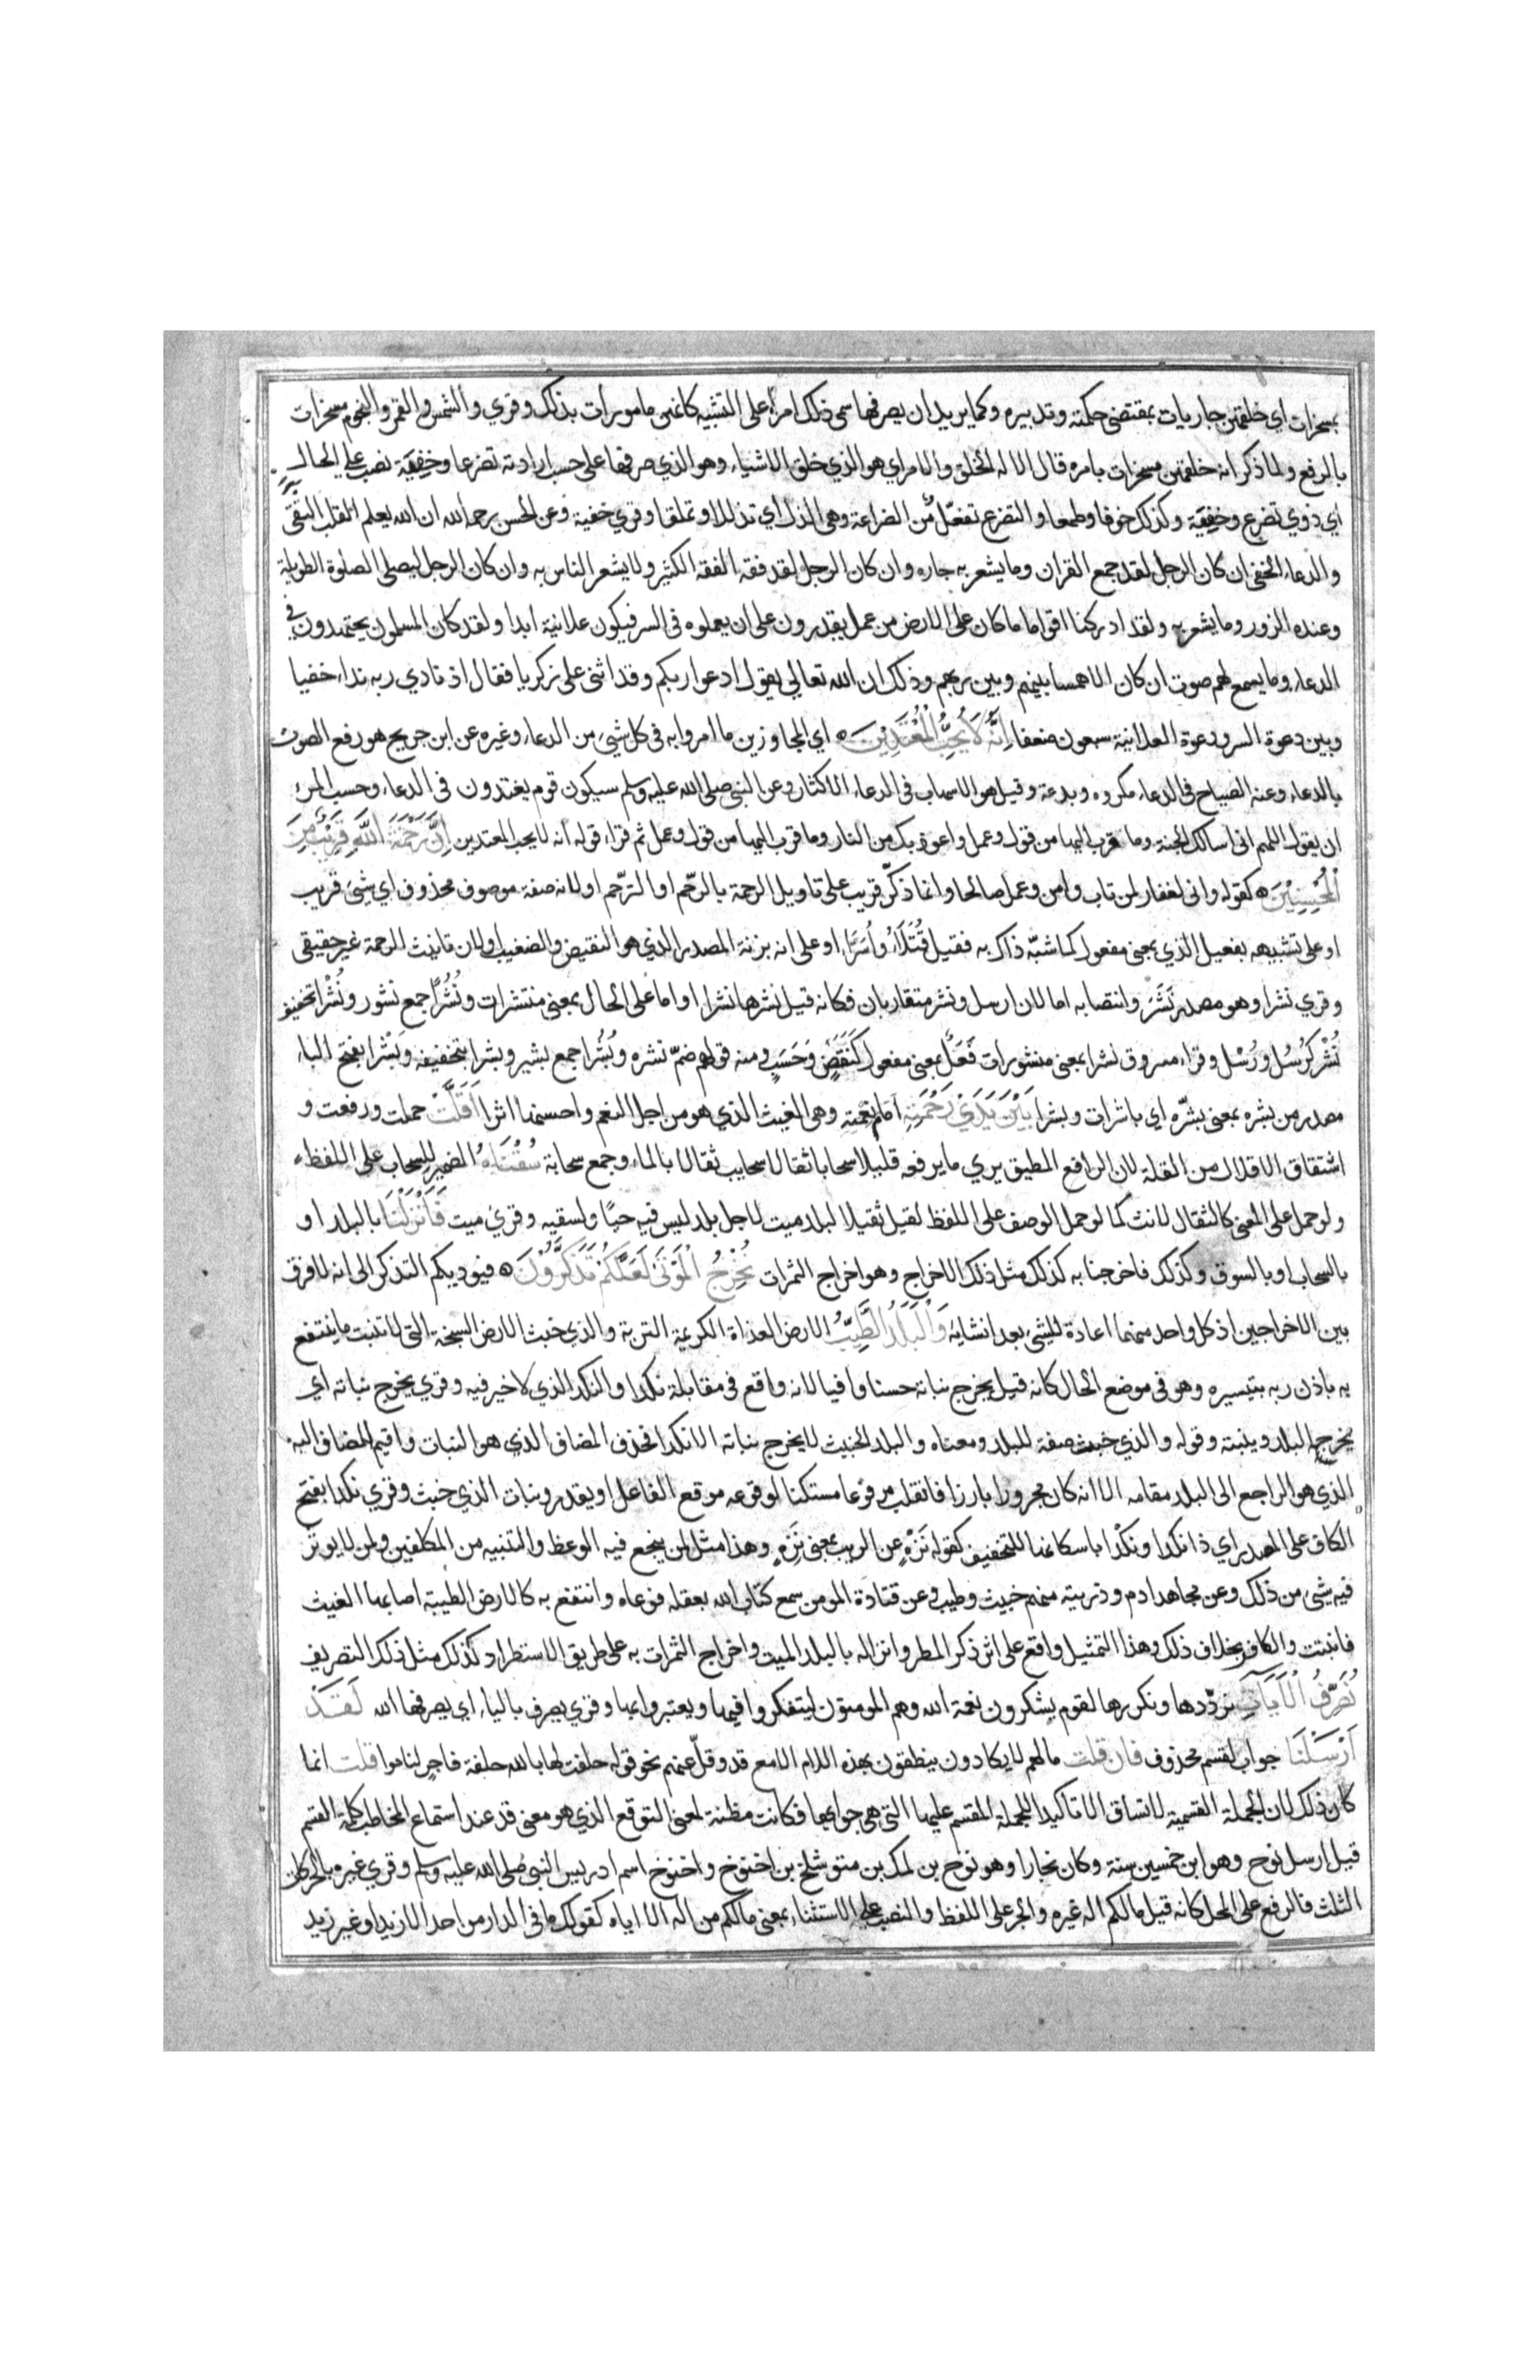 بمسخرات اي خلقهن جاريات بمقتضى حكمته وتدبيره وكما يريد ان يصرفها سمى ذلك امرا على التشبيه كانهن مامورات بذلك وقري والشمس والقمر والنجوم مسخرات
بالرفع ولما ذكر انه خلقهن مسخرات بامره قال الا له الخلق والامر اي هو الذي خلق الاشياء وهو الذي صرفها على حسب ارادته تضرعا وخفية نصب على الحال
اي ذوي تضرع وخفية وكذلك خوفا وطمعا والتضرع تفعّل من الضراعة وهي الذل اي تذللا وتملقا وقري خفية وعن الحسن رحمه الله ان الله يعلم القلب التقي
والدعاء الخفي ان كان الرجل لقد جمع القران وما يشعر به جاره وان كان الرجل لقد فقه الفقه الكثير ولا يشعر الناس به وان كان الرجل ليصلي الصلوة الطويلة
وعنده الزور وما يشعر به ولقد ادركنا اقواما ما كان على الارض من عمل يقدرون على ان يعملوه في السر فيكون علانية ابدا ولقد كان المسلمون يجتهدون في
الدعاء وما يسمع لهم صوت ان كان الا همسا بينهم وبين ربهم وذلك ان الله تعالى يقول ادعوا ربكم وقد اثنى على زكريا فقال اذ نادي ربه نداء خفيا
وبين دعوة السر ودعوة العلانية سبعون ضعفا اِنَّهُ لَا يُحِبُّ الْمُعْتَدِيْنَ ه اي المجاوزين ما امروا به في كل شيء من الدعاء وغيره عن ابن جريج هو رفع الصوت
بالدعاء وعنه الصياح في الدعاء مكروه وبدعة وقيل هو الاسهاب في الدعاء الاكثار وعن النبي صلى الله عليه وسلم سيكون قوم يعتدون في الدعاء وحسب المرء
ان يقول اللهم اني اسالك الجنة وما قرب اليها من قول وعمل واعوذ بك من النار وما قرب اليها من قول وعمل ثم قراء قوله انه لا يحب المعتدين اِنَّ رَحْمَةَ اللّٰهِ قَرِيْبٌ مِنَ
الْمُحْسِنِيْنَ ه كقوله واني لغفار لمن تاب وامن وعمل صالحا وانما ذكّر قريب على تاويل الرحمة بالرحم او الترحم او لانه صفة موصوف محذوف اي شيء قريب
او على تشبيهه بفعيل الذي بمعنى مفعول كما شبّه ذاك به فقيل قُتَلَاءُ وأُسَرَاء او على انه بزنة المصدر الذي هو النقيض والضغيب او لان تانيث الرحمة غير حقيقي
وقري نشرا وهو مصدر نَشَرَ وانتصابه اما لان ارسل ونشر متقاربان فكانه قيل نشرها نشرا او اما على الحال بمعنى منتشرات ونُشُرًا جمع نشور ونُشْرا تخفيف
نُشُر كرُسُل ورُسْل وقراء مسروق نشرا بمعنى منشورات فَعَلٌ بمعنى مفعول كَنَقَضٍ وَحَسَبٍ ومنه قولهم ضمّ نشره وبُشُرا جمع بشير وبشرا بتخفيفه وبَشْرا بفتح الباء
مصدر من بشره بمعنى بشّره اي باشرات وبشرا بَيْنَ يَدَيْ رَحْمَتِهِ امام نعمته وهي الغيث الذي هو من اجل النعم واحسنها اثرا اَقَلَّتْ حملت ورفعت و
اشتقاق الاقلال من القلة لان الرافع المطيق يري ما يرفعه قليلا سحابا ثقالا سحايب ثقالا بالماء وجمع سحابة سُقْنَاهُ الضمير للسحاب على اللفظ
ولو حمل على المعنى كالثقال لانث كما لو حمل الوصف على اللفظ لقيل ثقيلا لبلد ميت لاجل بلد ليس فيه حيًا ولسقيه وقري ميت فَاَنْزَلْنَا بالبلد او
بالسحاب او بالسوق وكذلك فاخرجنا به كذلك مثل ذلك الاخراج وهو اخراج الثمرات نُخْرِجُ الْمَوْتَى لَعَلَّكُمْ تَذَكَّرُوْنَ ه فيوديكم التذكر الى انه لا فرق
بين الاخراجين اذ كل واحد منهما اعادة للشيء بعد انشايه وَالْبَلَدُ الطَّيِّبُ الارض العذاة الكريمة التربة والذي خبث الارض السبخة التي لا تنبت ما ينتفع
به باذن ربه بتيسيره وهو في موضع الحال كانه قيل يخرج نباته حسنا وافيا لانه واقع في مقابلة نكدا والنكد الذي لا خير فيه وقري يخرج نباته اي
يخرجه البلد وينبته وقوله والذي خبث صفة للبلد ومعناه والبلد الخبيث لا يخرج نباته الا نكدا فحذف المضاف الذي هو النبات واقيم المضاف اليه
الذي هو الراجع الى البلد مقامه الا انه كان مجرورا بارزا فانقلب مرفوعا مستكنا لوقوعه موقع الفاعل او يقدر ونبات الذي خبث وقري نكدا بفتح
الكاف على المصدر اي ذا نكد ونكْدا باسكانها للتخفيف كقوله نَزْهٍ عن الريب بمعنى نَزِهٍ وهذا مثل لمن ينجع فيه الوعظ والتنبيه من المكلفين ولمن لا يوثر
فيه شي من ذلك وعن مجاهد ادم وذريته منهم خبيث وطيب وعن قتادة المومن سمع كتاب الله بعقله فوعاه وانتفع به كالارض الطيبة اصابها الغيث
فانبتت والكافر بخلاف ذلك وهذا التمثيل واقع على اثر ذكر المطر وانزاله بالبلد الميت واخراج الثمرات به على طريق الاستطراد كذلك مثل ذلك التصريف
نُصَرِّفُ الْاٰيَاتِ نردّدها ونكررها لقوم يشكرون نعمة الله وهم المومنون ليتفكروا فيها ويعتبروا بها وقري يصرف بالياء اي يصرفها الله لَقَدْ
اَرْسَلْنَا جواب لقسم محذوف فان قلت مالهم لا يكادون ينطقون بهذه اللام الا مع قد وقلّ عنهم نحو قوله حلفت لها بالله حلفة فاجر لناموا قلت انما
كان ذلك لان الجملة القسمية لا تساق الا تاكيدا للجملة المقسم عليها التي هي جوابها فكانت مظنة لمعنى التوقع الذي هو معنى قد عند استماع المخاطب كلمة القسم
قيل ارسل نوح وهو ابن خمسين سنة وكان نجارا وهو نوح بن لمك بن متوشلخ بن اخنوخ واخنوخ اسم ادريس النبي صلى الله عليه وسلم وقري غيره بالحركات
الثلث فالرفع على المحل كانه قيل مالكم اله غيره والجر على اللفظ والنصب على الاستثناء بمعنى مالكم من اله الا اياه كقولك ما في الدار من احد الا زيدا وغير زيد